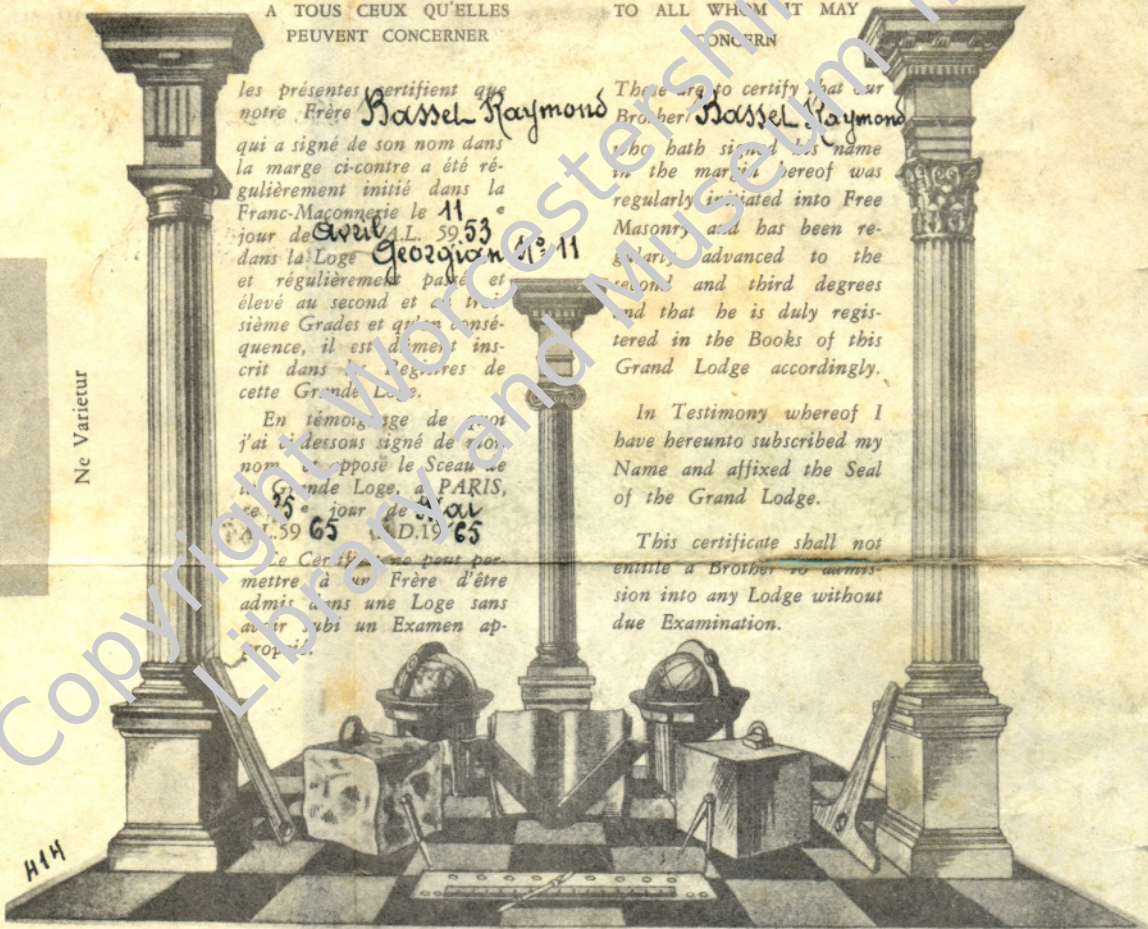 A TOUS CEUX QU'ELLES
PEUVENT CONCERNER
les présentes certifient que
notre Frère Bassel Raymond
qui a signé de son nom dans
la marge ci-contre a été ré-
gulièrement initié dans la
Franc-Maçonnerie le 11 e
jour de avril A.L. 5953
dans la Loge Georgian Nº 11
et régulièrement passé et
élevé au second et au troi
sième Grades et qu'en consé-
quence, il est dûment ins-
crit dans les Registres de
cette Grande Loge.
En témoignage de quoi
j'ai ci-dessous signé de mon
nom et apposé le Sceau de
la Grande Loge, à PARIS,
ce e jour de Mai
A.L.59 65 A.D.19 65
Ce Certificat ne peut per-
mettre à un Frère d'être
admis dans une Loge sans
avoir subi un Examen ap-
proprié.
TO ALL WHOM IT MAY
CONCERN
These are to certify that our
Brother Bassel Raymond
who hath signed his name
in the margin hereof was
regularly initiated into Free
Masonry and has been re-
gularly advanced to the
second and third degrees
and that he is duly regis-
tered in the Books of this
Grand Lodge accordingly.
In Testimony whereof I
have hereunto subscribed my
Name and affixed the Seal
of the Grand Lodge.
This certificate shall not
entitle a Brother to admis-
sion into any Lodge without
due Examination.
Ne Varietur
414
Copyright Worcestershi
Library and Museum